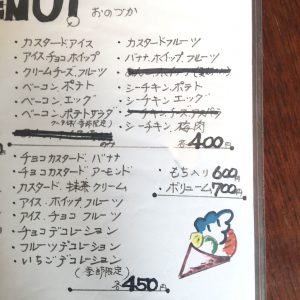 MO!
おのづか
・カスタードアイス
・アイスチョコホイップ
・クリームチーズ,フルーツ
・ベーコン,ポテト
・ベーコン,エッグ
・ベーコン,ポテトサラダ
(季節限定)
・カスタードフルーツ
・バナナ,ホイップ,フルーツ
・シーチキン,ポテト
・シーチキン,エッグ
・シーチキン,梅肉
各400円
・チョコカスタード,バナナ
・チョコカスタード,アーモンド
・カスタード,抹茶クリーム
・アイス,ホイップ,フルーツ
・アイス,チョコ,フルーツ
・チョコデコレーション
・フルーツデコレーション
・いちごデコレーション
(季節限定)
各450円
・もち入り600円
・ボリューム700円